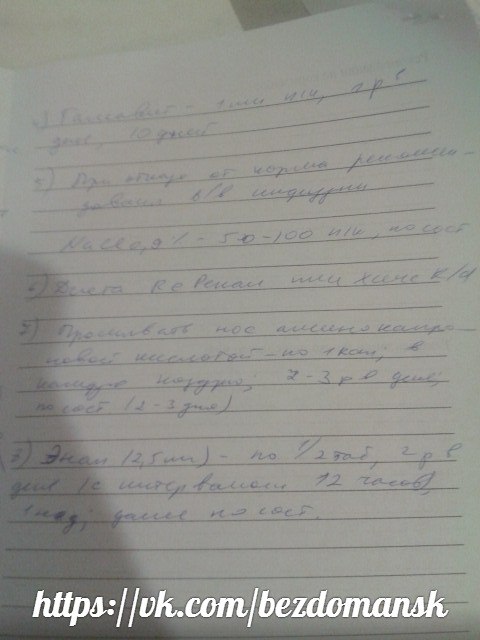 Гамавит - 1 мл п/к, 1 р в
день, 10 дней
5) При отказе от корма рекомен-
дованы в/в инфузии
NaCl 0,9% - 50-100 п/к, по сост
6) Диета RC Ренал или Хиллс K/d
7) Промывать нос аминокапро-
новой кислотой - по 1 кап; в
каждую ноздрю; 2-3 р в день;
по сост (2-3 дня)
Энап (2,5 мг) - по 1/2 таб, 2 р в
день (с интервалом 12 часов),
1 нед; далее по сост.
https://vk.com/bezdomansk